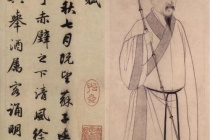 賦
秋七月既望蘇子與
于赤壁之下清風徐
興舉酒屬客誦明